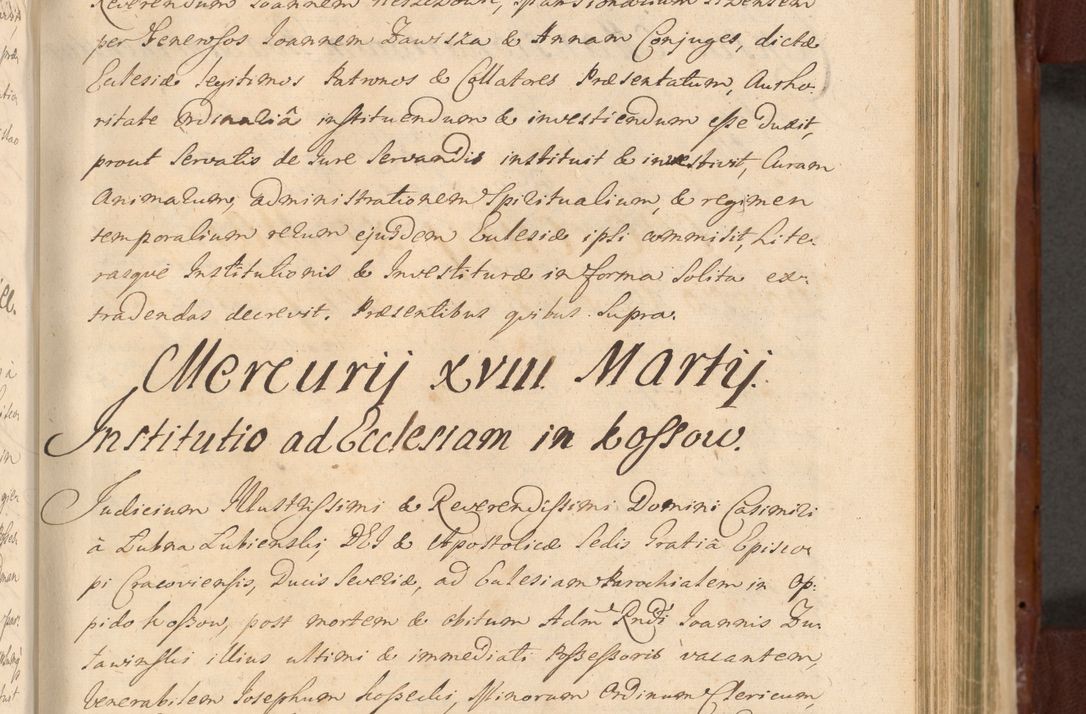 per Generosos Joannem Zawisza & Annam Conjuges, dictæ
Eclesiæ legitimos Patronos & Collatores Præsentatum, Autho-
ritate Ordinariâ instituendum & investiendum esse duxit,
prout servatis de Jure servandis instituit & investivit, Curam
Animarum, administrationem Spiritualium, & regimen
temporalium rerum ejusdem Eclesiæ ipsi commisit, Lite-
rasque Institutionis & Investituræ in forma solita ex-
tradendas decrevit. Præsentibus quibus supra.
Mercurij XVIII Martij.
Institutio ad Ecclesiam in Kossow.
Judicium Illustrissimi & Reverendissimi Domini Casimiri
à Lubna Lubienski, DEI & Apostolicæ Sedis Gratiâ Episco-
pi Cracoviensis, Ducis Severiæ, ad Eclesiam Parochialem in Op-
pido Kossow, post mortem & obitum Adm Rndi Joannis Du-
tawinski illius ultimi & immediati Possessoris vacantem,
Venerabilem Josephum Kossecki, Minorum Ordinum Clericum,